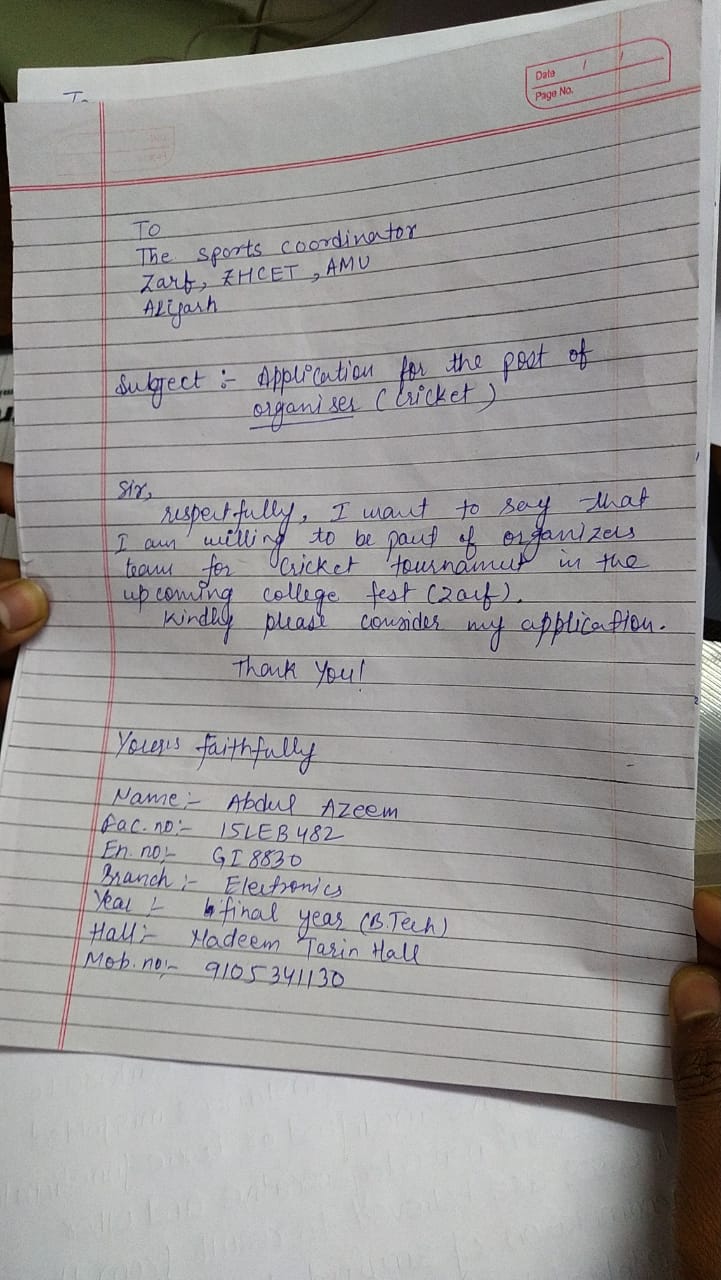 Date / /
Page No.
To
To
The sports coordinator
Zarf, ZHCET, AMU
Aligarh
Subject :- Application for the post of
organiser (Cricket)
Sir,
respectfully, I want to say that
I am willing to be part of organizers
team for Cricket tournament in the
upcoming college fest (Zarf).
Kindly please consider my application.
Thank You!
Yours faithfully
Name :- Abdul Azeem
Fac. no :- 15LEB482
En. no :- GI8830
Branch :- Electronics
Year :- final year (B.Tech)
Hall :- Nadeem Tarin Hall
Mob. no :- 9105341130